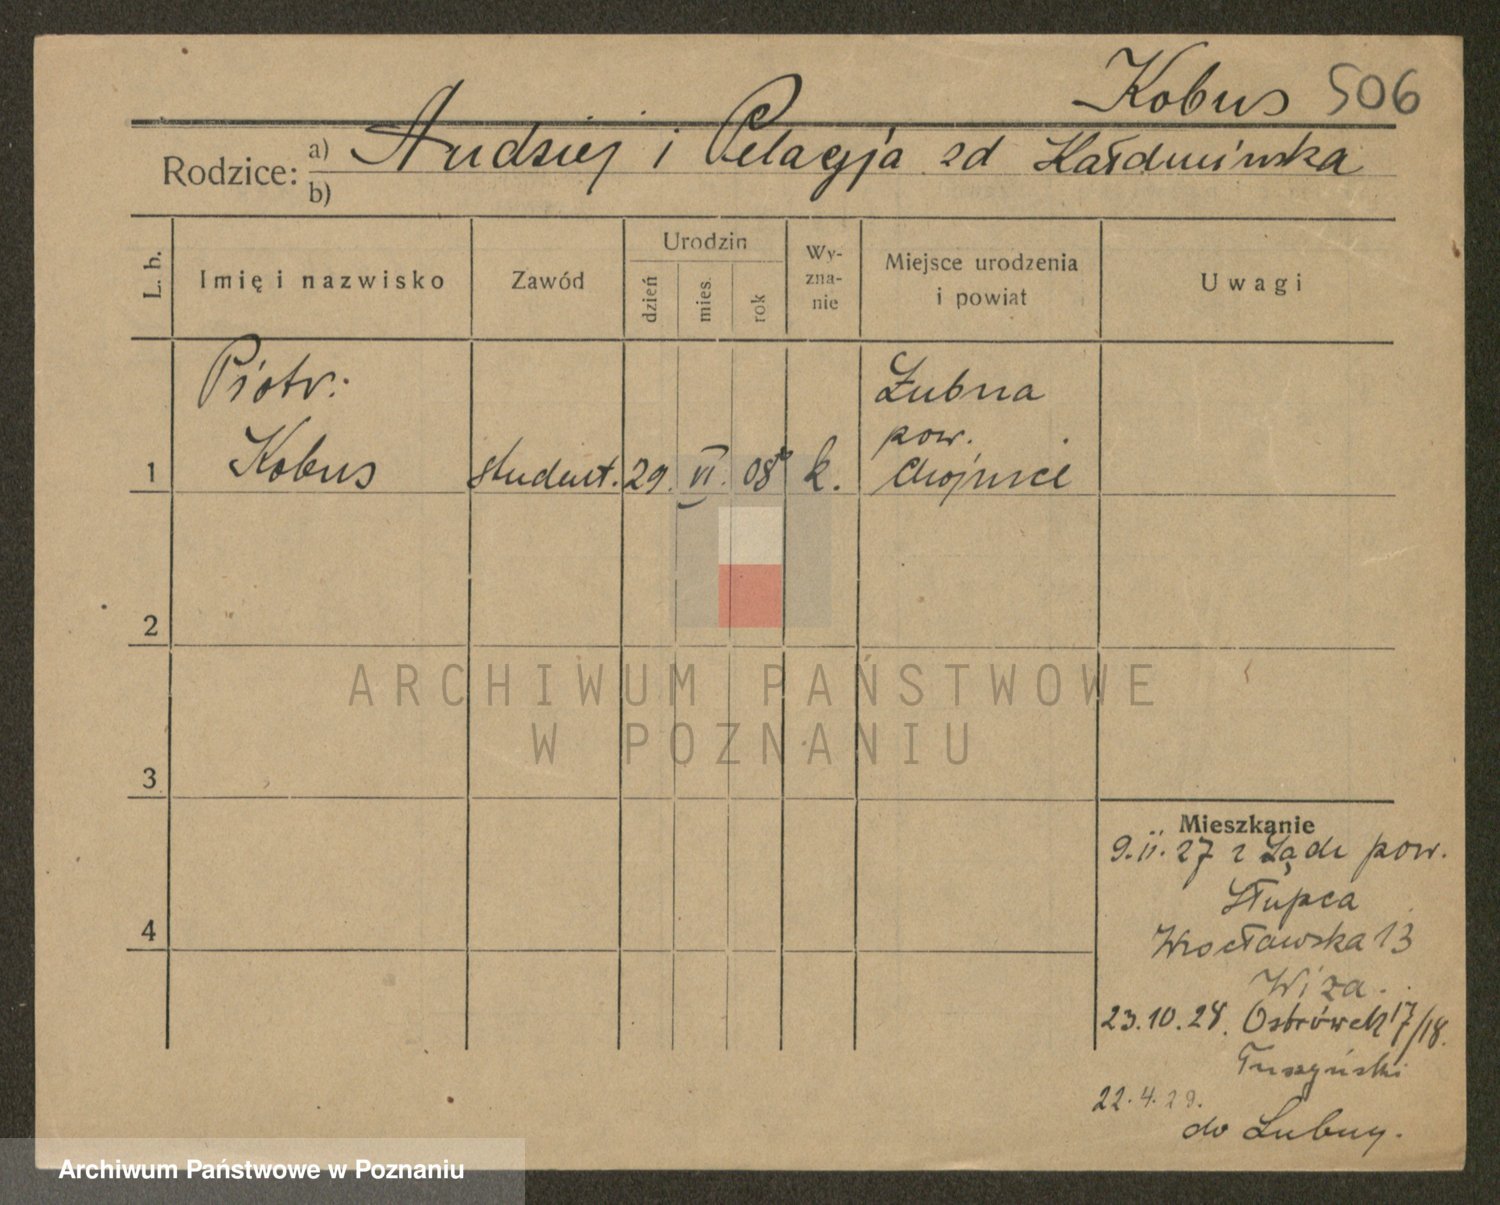 Kobus 506
Rodzice: a) Andrzej i Pelagja zd
b)
L. b. Imię i nazwisko Zawód Urodzin dzień mies. rok Wy-zna-nie Miejsce urodzenia i powiat Uwagi
Piotr. Łubna
pow.
1 Kobus student. 29. VI. 08 k. Chojnice
2
3
4
Mieszkanie
9.II.27 z Lądu pow.
Słupca
Wrocławska 13
Wiza.
23.10.28. Ostrówek 17/18.
Tuszyński
22.4.29.
do Lubny.
ARCHIWUM PAŃSTWOWE
W POZNANIU
Archiwum Państwowe w Poznaniu